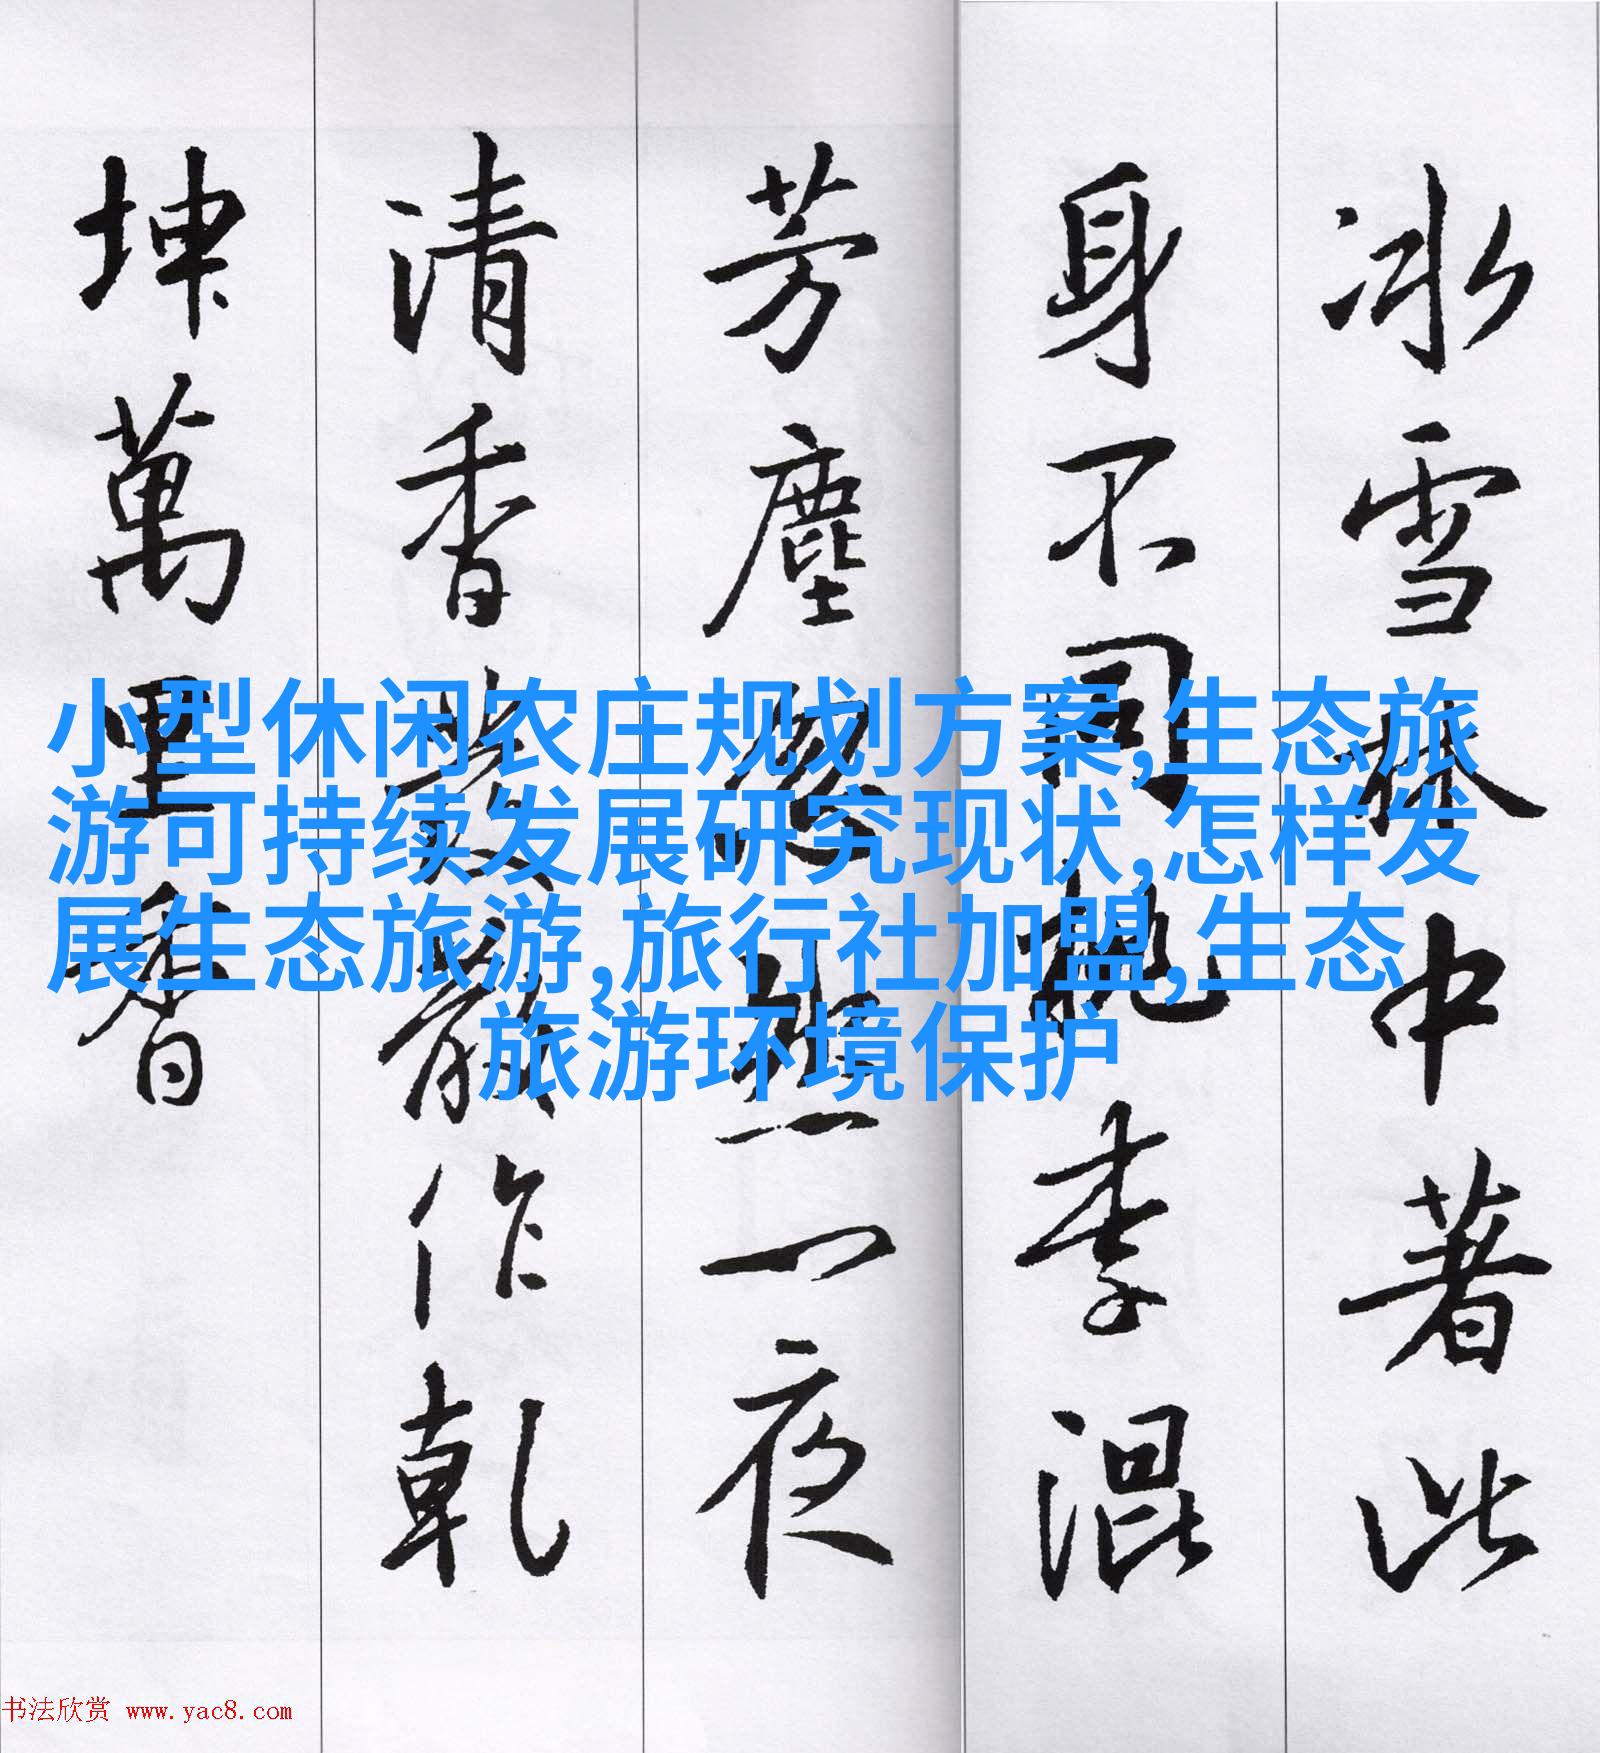 冰雪林中著此
身不同桃李混
芳塵忽然一夜
清香發散作乾
坤萬里春
小型休闲农庄规划方案,生态旅
游可持续发展研究现状,怎样发
展生态旅游,旅行社加盟,生态
旅游环境保护
书法欣赏 www.yac8.com